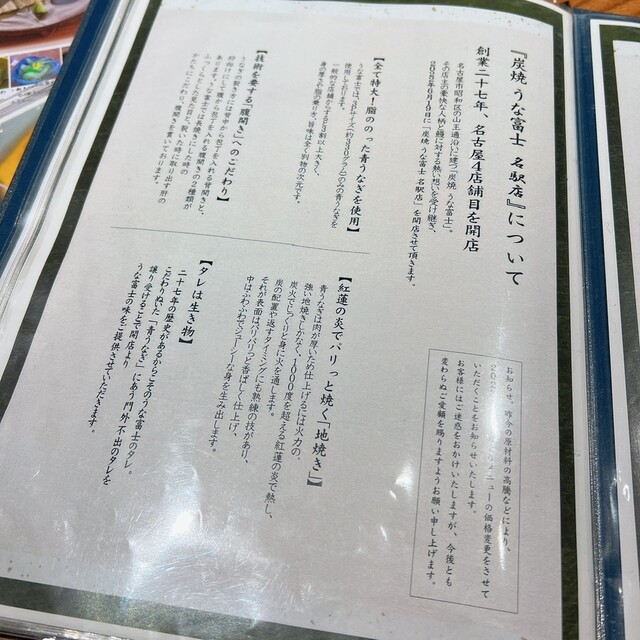 『炭焼 うな富士 名駅店』について
創業二十七年、名古屋五店舗目を開店
名古屋市昭和区の山王通沿いに建つ「炭焼 うな富士」。
その店主の豪快な人柄と鰻に対する熱い想いを受け継ぎ、
2022年6月19日に「炭焼 うな富士 名駅店」を開店させて頂きます。
【全て特大！脂ののった青うなぎを使用】
うな富士では、3Pサイズ(約330グラム)のみの青うなぎを
使用しております。
一般的な店舗かすると3割以上大きく、
身の厚さや脂の乗り方、旨味は全く別物の次元です。
【技術を要する「腹開き」へのこだわり】
うなぎの捌き方には背中から包丁を入れる背開きと、
仰向けにして腹から包丁を入れる腹開きの２種類が
あります。うな富士では長焼きにした時の
ふっくらとした見た目と、裂いた時に取り出す肝の
かたちにこだわり、腹開きを貫いております。
【紅蓮の炎でパリっと焼く「地焼き」】
青うなぎは肉が厚いため仕上げるには火力の
強い地焼きしかなく、1000度を超える紅蓮の炎で熱し、
炭火でじっくりと身に火を通します。
炭の配置や返すタイミングにも熟練の技があり、
それが表面はパリパリっと香ばしく仕上げ、
中はふわふわでジューシーな身を生み出します。
【タレは生き物】
二十七年の歴史があるからこそのうな富士のタレ。
こだわりぬいた「青うなぎ」にあう門外不出のタレを
譲り受けることで開店より
うな富士の味をご提供させていただきます。
お知らせ、昨今の原材料の高騰などにより、
メニューの価格変更をさせて
いただくことをお知らせいたします。
お客様にはご迷惑をおかけいたしますが、今後とも
変わらぬご愛顧を賜りますようお願い申し上げます。